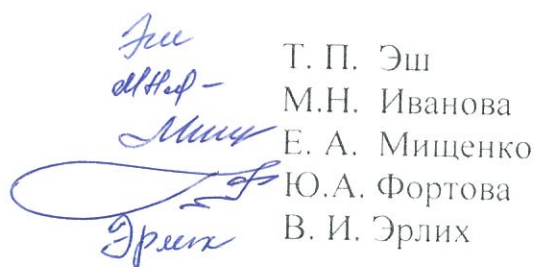 Т. П. Эш
М.Н. Иванова
Е. А. Мищенко
Ю.А. Фортова
Эрлих В. И. Эрлих